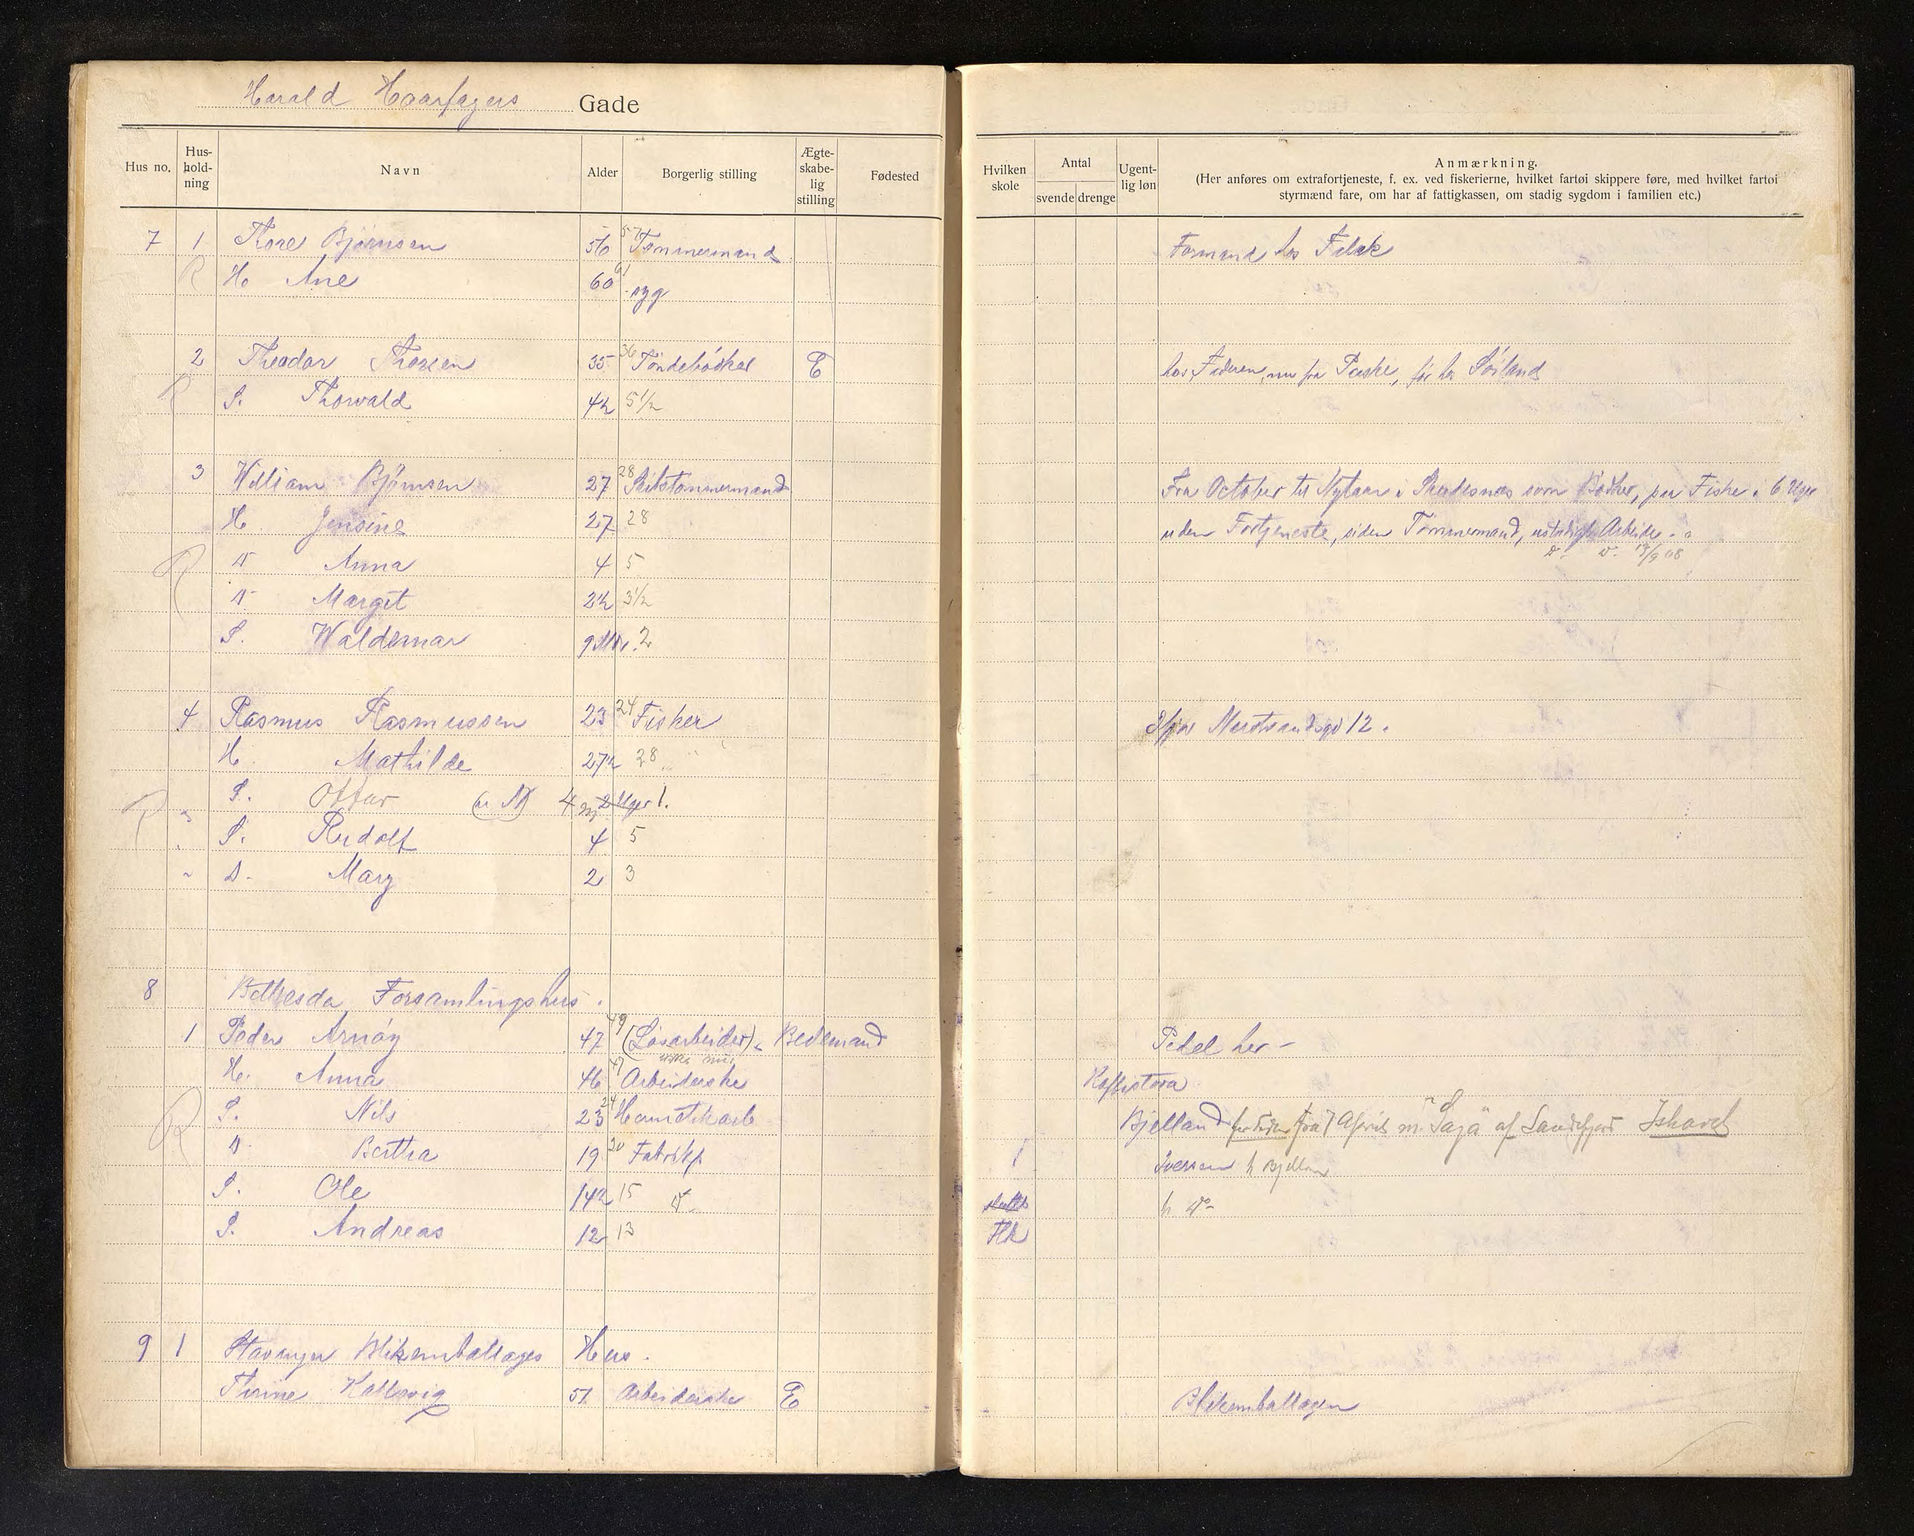 Harald Haarfagers Gade
Hus no. Hus-hold-ning Navn Alder Borgerlig stilling Ægte-skabe-lig stilling Fødested Hvilken skole Antal svende drenge Ugent-lig løn Anmærkning.
(Her anføres om extrafortjeneste, f. ex. ved fiskerierne, hvilket fartøi skippere føre, med hvilket fartøi
styrmænd fare, om har af fattigkassen, om stadig sygdom i familien etc.)
7 1 Thore Bjørnsen 56 57 Tømmermand Formand hos Falck
H. Ane 60 61 syg
2 Theodor Thorsen 35 36 Tøndebødker E hos Faderen, nu fra Paaske, før hos Søiland
S. Thorvald 4½ 5½
3 William Bjørnsen 27 28 Skibstømmermand Fra October til Nytaar i Skudesnæs som Bødker, paa Fiske i 6 Uger
H. Jensine 27 28 uden Fortjeneste, siden Tømmermand, ustadigt Arbeide.
D Anna 4 5
D Margit 2½ 3½
S. Waldemar 9 Mdr. 2
4 Rasmus Rasmussen 23 24 Fisker Nordsundsgd 12.
H. Mathilde 27½ 28
S. Ottar 2 Uger 1.
S. Rudolf 4 5
D. Mary 2 3
8 Bethesda Forsamlingshus.
1 Peder Arnøy 47 49 (Løsarbeider) Bedemand Pedel her -
H. Anna 46 47 Arbeiderske Kaffistova
S. Nils 23 24 Hermetikarb Bjelland fra 7 April m. "Saga" af Sandefjord Ishavet
D Bertha 19 20 Fabrikp Iversen h Bjelland
S. Ole 14½ 15 h do
S. Andreas 12 13 Flk
9 1 Stavanger Blikemballages Hus.
Thrine Hallesvig 51 Arbeiderske E Blikemballagen